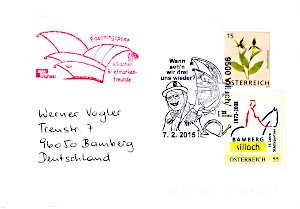 Faschingspost
Villacher
Briefmarken-
freunde
Wann
seh'n
wir drei
uns wieder?
9500
7. 2. 2015
15
ÖSTERREICH
BAMBERG
villach
ÖSTERREICH 55
Werner Vogler
Treustr. 7
96050 Bamberg
Deutschland